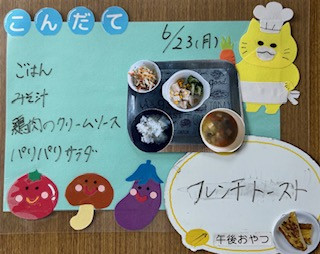 こんだて
6/23(月)
ごはん
みそ汁
鶏肉のクリームソース
パリパリサラダ
フレンチトースト
午後おやつ